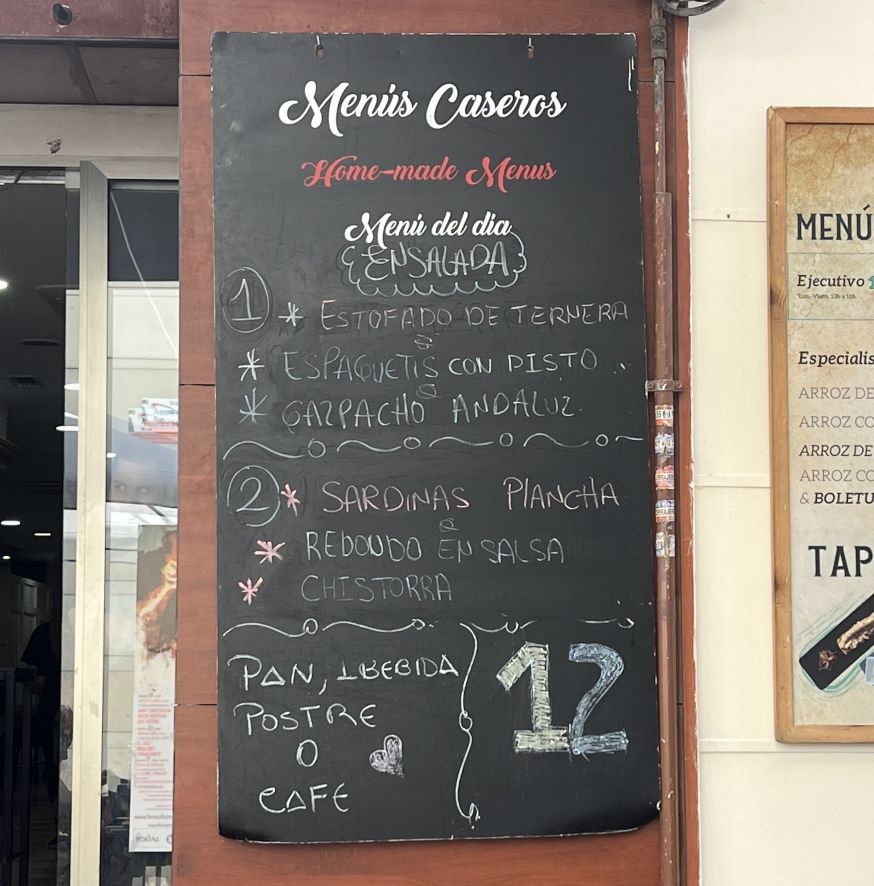 Menús Caseros
Home-made Menus
Menú del día
ENSALADA
1 * ESTOFADO DE TERNERA
* ESPAGUETIS CON PISTO
* GAZPACHO ANDALUZ
2 * SARDINAS PLANCHA
* REDONDO EN SALSA
* CHISTORRA
PAN, 1 BEBIDA
POSTRE
O
CAFE
12
MENÚ
Ejecutivo
*Lun.-Viern. 13h a 16h.
Especialis
ARROZ DE
ARROZ CO
ARROZ DE
ARROZ CO
& BOLETU
TAP